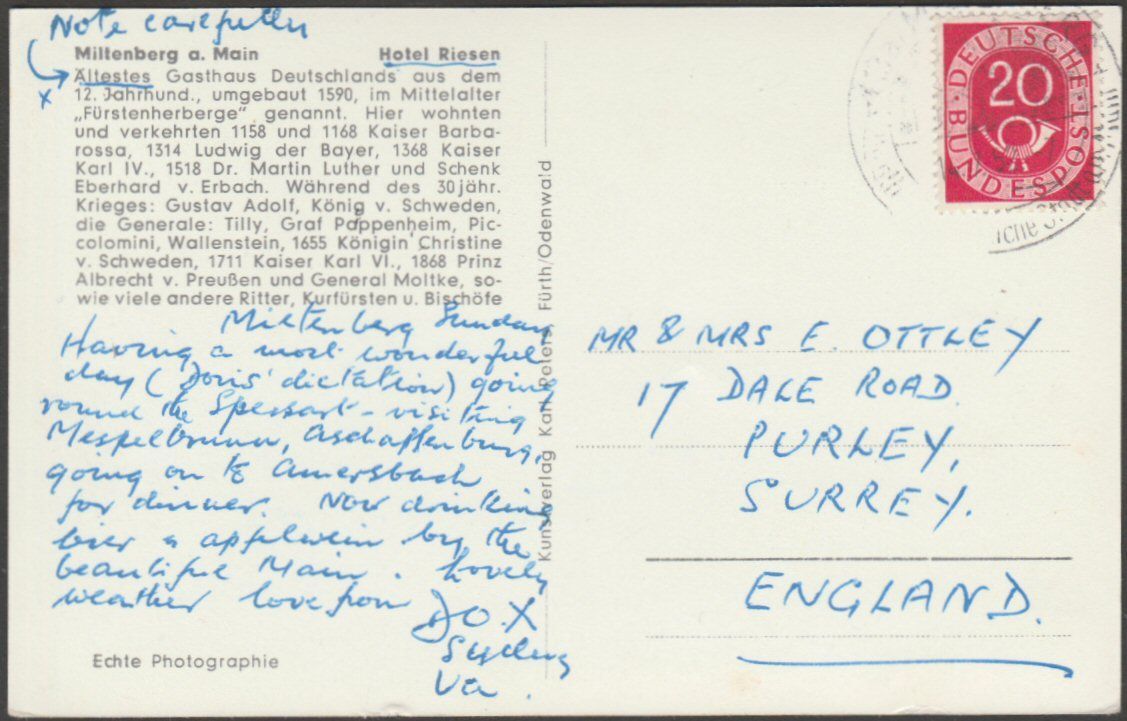 Note carefully
Miltenberg a. Main Hotel Riesen
Ältestes Gasthaus Deutschlands aus dem
x
12. Jahrhund., umgebaut 1590, im Mittelalter
„Fürstenherberge" genannt. Hier wohnten
und verkehrten 1158 und 1168 Kaiser Barba-
rossa, 1314 Ludwig der Bayer, 1368 Kaiser
Karl IV., 1518 Dr. Martin Luther und Schenk
Eberhard v. Erbach. Während des 30jähr.
Krieges: Gustav Adolf, König v. Schweden,
die Generale: Tilly, Graf Pappenheim, Pic-
colomini, Wallenstein, 1655 Königin Christine
v. Schweden, 1711 Kaiser Karl VI., 1868 Prinz
Albrecht v. Preußen und General Moltke, so-
wie viele andere Ritter, Kurfürsten u. Bischöfe
Miltenberg Sunday
Having a most wonderful
day (Doris' dictation) going
round the Spessart - visiting
Mespelbrunn, Aschaffenburg,
going on to Amersbach
for dinner. Now drinking
bier & apfelwein by the
beautiful Main. Lovely
weather love from
DO.X
Va.
Echte Photographie
Kunstverlag Karl Peters, Fürth/Odenwald
DEUTSCHE BUNDESPOST
20
MR & MRS E. OTTLEY
17 DALE ROAD.
PURLEY,
SURREY.
ENGLAND.